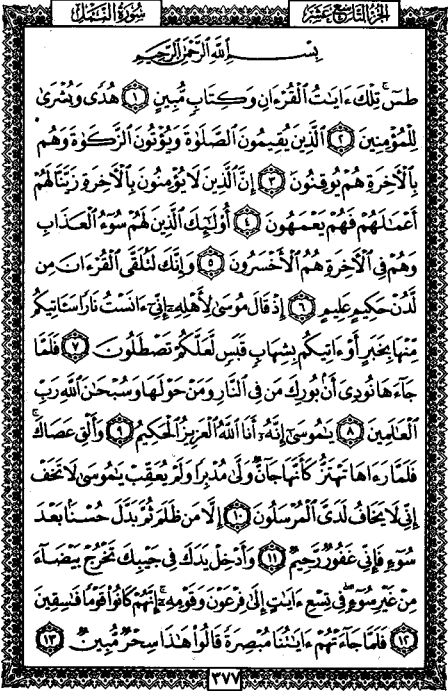 الجزء التاسع عشر
سورة النمل
بسم الله الرحمن الرحيم
طسٓ ۚ تِلْكَ ءَايَٰتُ ٱلْقُرْءَانِ وَكِتَابٍ مُّبِينٍ ١ هُدًى وَبُشْرَىٰ
لِلْمُؤْمِنِينَ ٢ ٱلَّذِينَ يُقِيمُونَ ٱلصَّلَوٰةَ وَيُؤْتُونَ ٱلزَّكَوٰةَ وَهُم
بِٱلْءَاخِرَةِ هُمْ يُوقِنُونَ ٣ إِنَّ ٱلَّذِينَ لَا يُؤْمِنُونَ بِٱلْءَاخِرَةِ زَيَّنَّا لَهُمْ
أَعْمَٰلَهُمْ فَهُمْ يَعْمَهُونَ ٤ أُو۟لَٰٓئِكَ ٱلَّذِينَ لَهُمْ سُوٓءُ ٱلْعَذَابِ
وَهُمْ فِى ٱلْءَاخِرَةِ هُمُ ٱلْأَخْسَرُونَ ٥ وَإِنَّكَ لَتُلَقَّى ٱلْقُرْءَانَ مِن
لَّدُنْ حَكِيمٍ عَلِيمٍ ٦ إِذْ قَالَ مُوسَىٰ لِأَهْلِهِۦٓ إِنِّىٓ ءَانَسْتُ نَارًا سَـَٔاتِيكُم
مِّنْهَا بِخَبَرٍ أَوْ ءَاتِيكُم بِشِهَابٍ قَبَسٍ لَّعَلَّكُمْ تَصْطَلُونَ ٧ فَلَمَّا
جَآءَهَا نُودِىَ أَنۢ بُورِكَ مَن فِى ٱلنَّارِ وَمَنْ حَوْلَهَا وَسُبْحَٰنَ ٱللَّهِ رَبِّ
ٱلْعَٰلَمِينَ ٨ يَٰمُوسَىٰٓ إِنَّهُۥٓ أَنَا ٱللَّهُ ٱلْعَزِيزُ ٱلْحَكِيمُ ٩ وَأَلْقِ عَصَاكَ ۚ
فَلَمَّا رَءَاهَا تَهْتَزُّ كَأَنَّهَا جَآنٌّ وَلَّىٰ مُدْبِرًا وَلَمْ يُعَقِّبْ ۚ يَٰمُوسَىٰ لَا تَخَفْ
إِنِّى لَا يَخَافُ لَدَىَّ ٱلْمُرْسَلُونَ ١٠ إِلَّا مَن ظَلَمَ ثُمَّ بَدَّلَ حُسْنًۢا بَعْدَ
سُوٓءٍ فَإِنِّى غَفُورٌ رَّحِيمٌ ١١ وَأَدْخِلْ يَدَكَ فِى جَيْبِكَ تَخْرُجْ بَيْضَآءَ
مِنْ غَيْرِ سُوٓءٍ ۖ فِى تِسْعِ ءَايَٰتٍ إِلَىٰ فِرْعَوْنَ وَقَوْمِهِۦٓ ۚ إِنَّهُمْ كَانُوا۟ قَوْمًا فَٰسِقِينَ
١٢ فَلَمَّا جَآءَتْهُمْ ءَايَٰتُنَا مُبْصِرَةً قَالُوا۟ هَٰذَا سِحْرٌ مُّبِينٌ ١٣
٣٧٧